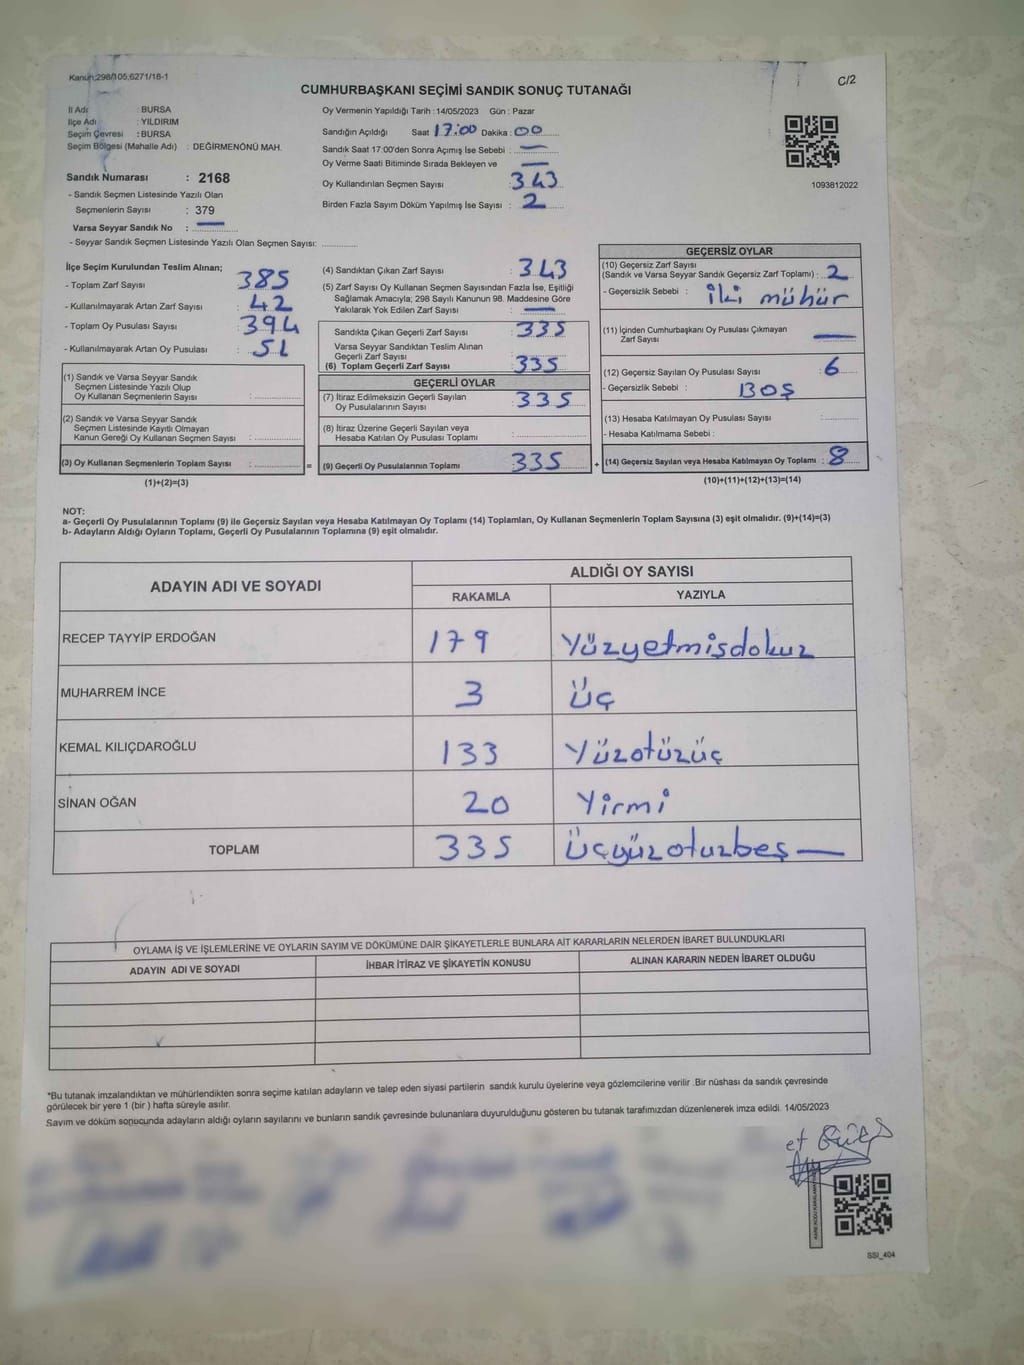 Kanun:298/105,6271/18-1
C/2
CUMHURBAŞKANI SEÇİMİ SANDIK SONUÇ TUTANAĞI
İl Adı : BURSA
İlçe Adı : YILDIRIM
Seçim Çevresi : BURSA
Seçim Bölgesi (Mahalle Adı) : DEĞİRMENÖNÜ MAH.
Sandık Numarası : 2168
- Sandık Seçmen Listesinde Yazılı Olan
Seçmenlerin Sayısı : 379
Varsa Seyyar Sandık No : —
- Seyyar Sandık Seçmen Listesinde Yazılı Olan Seçmen Sayısı: ............
Oy Vermenin Yapıldığı Tarih : 14/05/2023 Gün : Pazar
Sandığın Açıldığı Saat 17:00 Dakika : 00
Sandık Saat 17:00'den Sonra Açımış İse Sebebi : —
Oy Verme Saati Bitiminde Sırada Bekleyen ve —
Oy Kullandırılan Seçmen Sayısı : 343
Birden Fazla Sayım Döküm Yapılmış İse Sayısı : 2
1093812022
İlçe Seçim Kurulundan Teslim Alınan;
- Toplam Zarf Sayısı : 385
- Kullanılmayarak Artan Zarf Sayısı : 42
- Toplam Oy Pusulası Sayısı : 394
- Kullanılmayarak Artan Oy Pusulası : 51
(1) Sandık ve Varsa Seyyar Sandık
Seçmen Listesinde Yazılı Olup
Oy Kullanan Seçmenlerin Sayısı : ............
(2) Sandık ve Varsa Seyyar Sandık
Seçmen Listesinde Kayıtlı Olmayan
Kanun Gereği Oy Kullanan Seçmen Sayısı : ............
(3) Oy Kullanan Seçmenlerin Toplam Sayısı : ............ =
(1)+(2)=(3)
(4) Sandıktan Çıkan Zarf Sayısı : 343
(5) Zarf Sayısı Oy Kullanan Seçmen Sayısından Fazla İse, Eşitliği
Sağlamak Amacıyla; 298 Sayılı Kanunun 98. Maddesine Göre
Yakılarak Yok Edilen Zarf Sayısı : —
Sandıkta Çıkan Geçerli Zarf Sayısı : 335
Varsa Seyyar Sandıktan Teslim Alınan
Geçerli Zarf Sayısı
(6) Toplam Geçerli Zarf Sayısı : 335
GEÇERLİ OYLAR
(7) İtiraz Edilmeksizin Geçerli Sayılan
Oy Pusulalarının Sayısı : 335
(8) İtiraz Üzerine Geçerli Sayılan veya
Hesaba Katılan Oy Pusulası Toplamı : ............
(9) Geçerli Oy Pusulalarının Toplamı : 335 +
GEÇERSİZ OYLAR
(10) Geçersiz Zarf Sayısı
(Sandık ve Varsa Seyyar Sandık Geçersiz Zarf Toplamı) : 2
- Geçersizlik Sebebi : iki mühür
(11) İçinden Cumhurbaşkanı Oy Pusulası Çıkmayan
Zarf Sayısı : —
(12) Geçersiz Sayılan Oy Pusulası Sayısı : 6
- Geçersizlik Sebebi : BOŞ
(13) Hesaba Katılmayan Oy Pusulası Sayısı : ............
- Hesaba Katılmama Sebebi :
(14) Geçersiz Sayılan veya Hesaba Katılmayan Oy Toplamı : 8
(10)+(11)+(12)+(13)=(14)
NOT:
a- Geçerli Oy Pusulalarının Toplamı (9) ile Geçersiz Sayılan veya Hesaba Katılmayan Oy Toplamı (14) Toplamları, Oy Kullanan Seçmenlerin Toplam Sayısına (3) eşit olmalıdır. (9)+(14)=(3)
b- Adayların Aldığı Oyların Toplamı, Geçerli Oy Pusulalarının Toplamına (9) eşit olmalıdır.
ADAYIN ADI VE SOYADI ALDIĞI OY SAYISI
RAKAMLA YAZIYLA
RECEP TAYYİP ERDOĞAN 179 Yüzyetmişdokuz
MUHARREM İNCE 3 üç
KEMAL KILIÇDAROĞLU 133 Yüzotüzüç
SİNAN OĞAN 20 Yirmi
TOPLAM 335 üçyüzotuzbeş —
OYLAMA İŞ VE İŞLEMLERİNE VE OYLARIN SAYIM VE DÖKÜMÜNE DAİR ŞİKAYETLERLE BUNLARA AİT KARARLARIN NELERDEN İBARET BULUNDUKLARI
ADAYIN ADI VE SOYADI İHBAR İTİRAZ VE ŞİKAYETİN KONUSU ALINAN KARARIN NEDEN İBARET OLDUĞU
*Bu tutanak imzalandıktan ve mühürlendikten sonra seçime katılan adayların ve talep eden siyasi partilerin sandık kurulu üyelerine veya gözlemcilerine verilir .Bir nüshası da sandık çevresinde
görülecek bir yere 1 (bir ) hafta süreyle asılır.
Sayım ve döküm sonucunda adayların aldığı oyların sayılarını ve bunların sandık çevresinde bulunanlara duyurulduğunu gösteren bu tutanak tarafımızdan düzenlenerek imza edildi. 14/05/2023
SSI_404